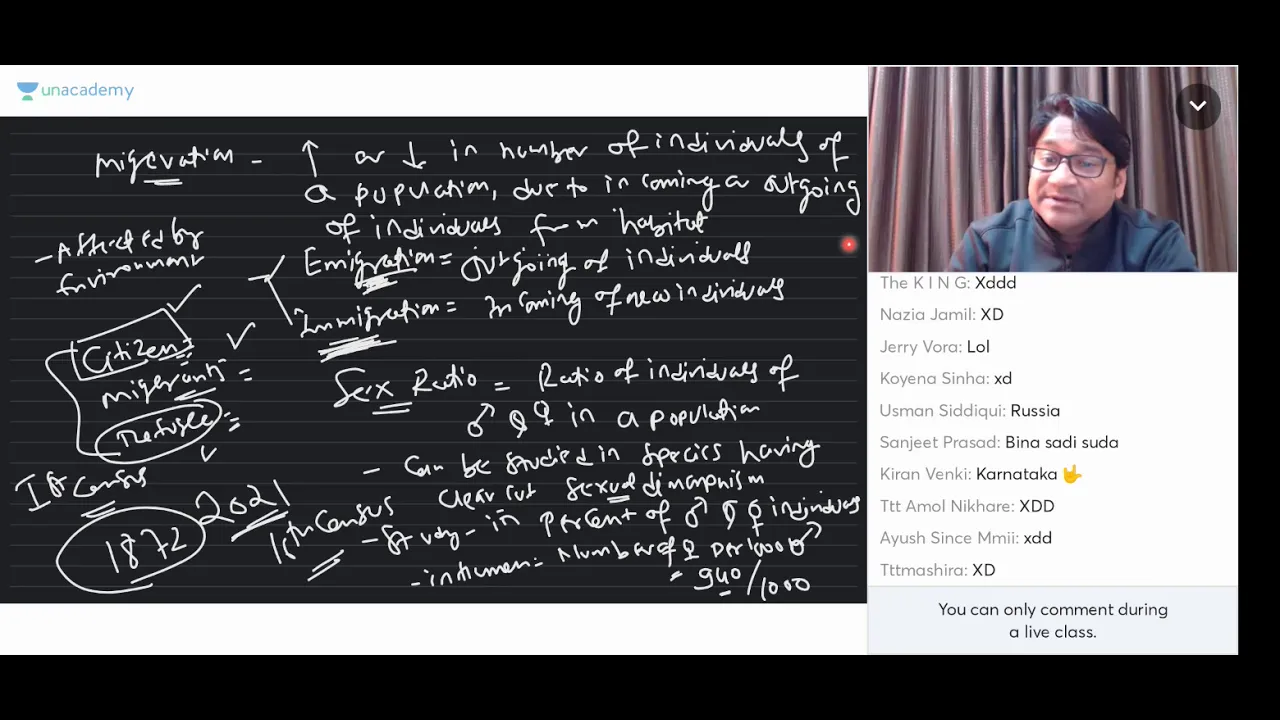 unacademy
migration - ↑ or ↓ in number of individuals of
a population, due to incoming or outgoing
of individuals from habitat
- Affected by
Environment
Emigration = outgoing of individuals
Immigration = Incoming of new individuals
Citizen
migrants =
Sex Ratio = Ratio of individuals of
♂ & ♀ in a population
- Can be studied in species having
clear cut sexual dimorphism
- Study - in percent of ♂ & ♀ individuals
- in human = Number of ♀ per 1000 ♂
= 940/1000
Ist Census
1872
2021
16th Census
The K I N G: Xddd
Nazia Jamil: XD
Jerry Vora: Lol
Koyena Sinha: xd
Usman Siddiqui: Russia
Sanjeet Prasad: Bina sadi suda
Kiran Venki: Karnataka 🤟
Ttt Amol Nikhare: XDD
Ayush Since Mmii: xdd
Tttmashira: XD
You can only comment during
a live class.